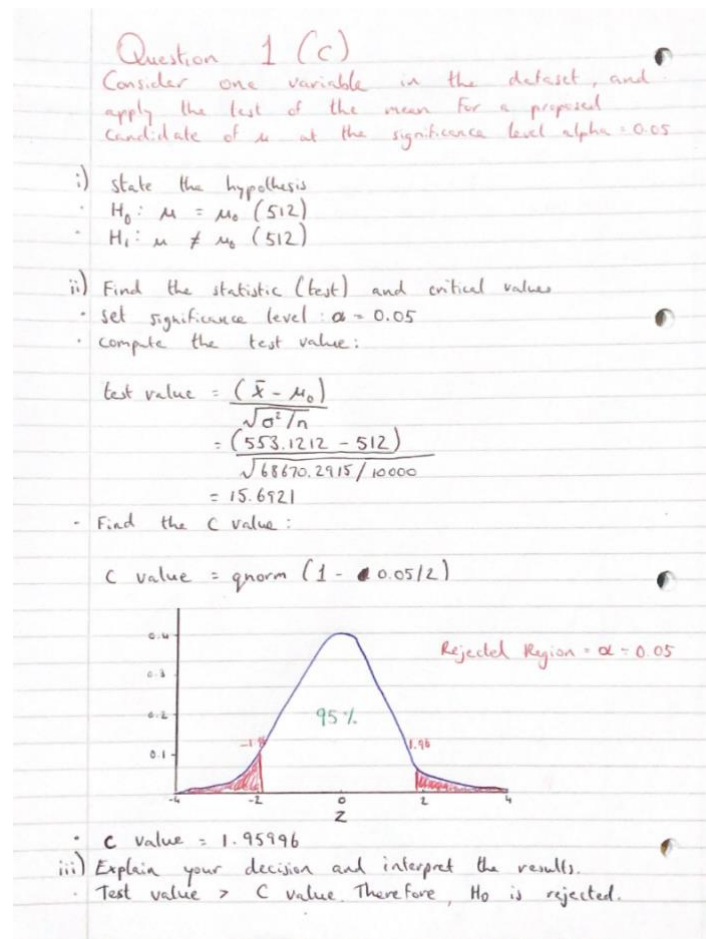 Question 1 (c)
Consider one variable in the dataset, and
apply the test of the mean for a proposed
candidate of μ at the significance level alpha = 0.05
i) state the hypothesis
· H₀: μ = μ₀ (512)
· H₁: μ ≠ μ₀ (512)
ii) Find the statistic (test) and critical values
· set significance level : α = 0.05
· compute the test value:
test value = (x̄ - μ₀)
√σ²/n
= (553.1212 - 512)
√68670.2915/10000
= 15.6921
- Find the C value:
C value = qnorm (1 - 0.05/2)
0.4
Rejected Region = α = 0.05
0.3
0.2
95%
0.1
1.96
-4 -2 0 2 4
Z
· C value = 1.95996
iii) Explain your decision and interpret the results.
· Test value > C value. Therefore, H₀ is rejected.